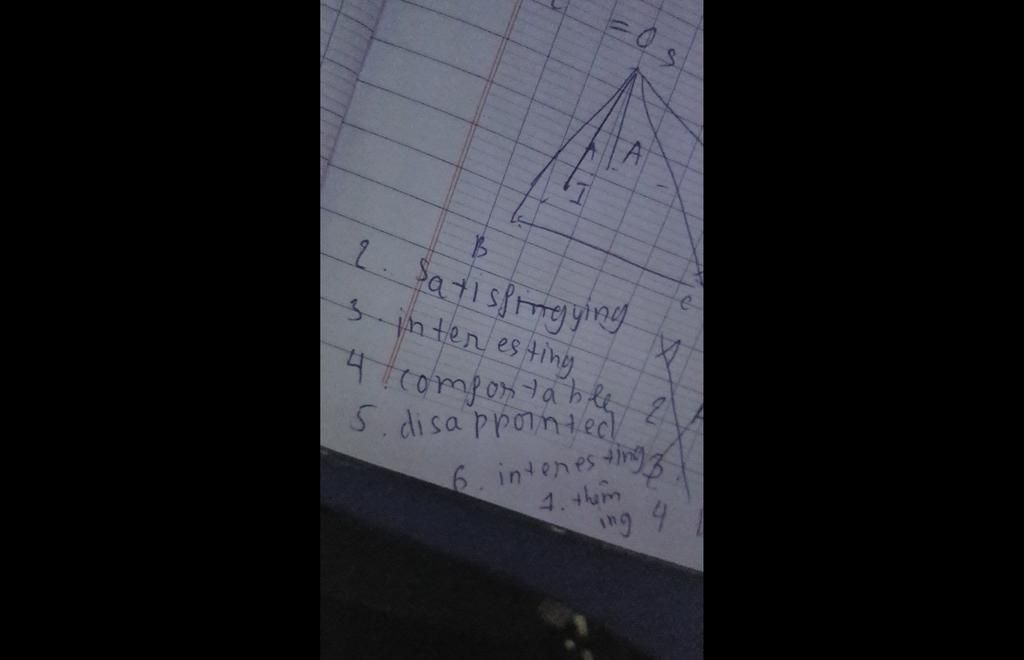 = 0 s
A A
I
B
C
2. satisfingying
3. interesting
4. comfortable
5. disappointed
6. interesting
1. them
ing
2
3.
4